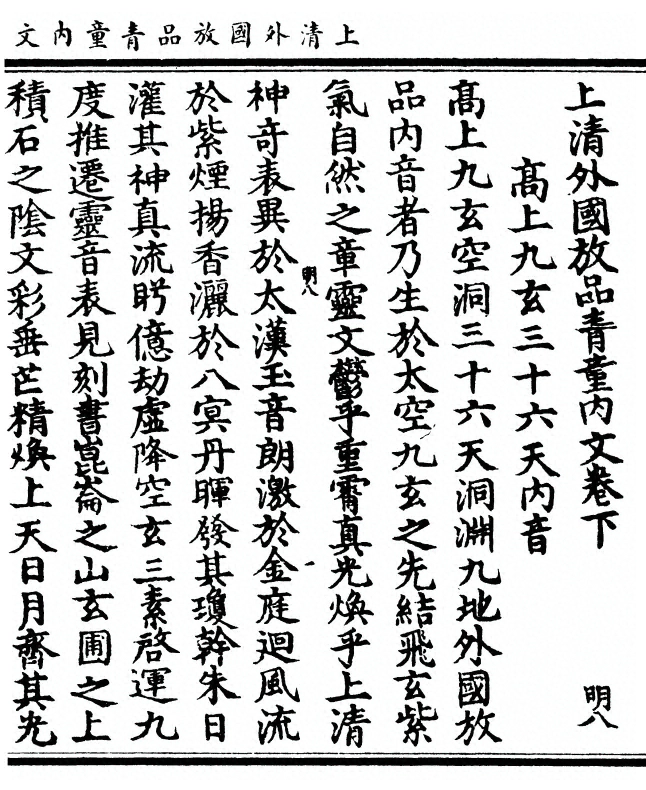 上清外國放品青童內文
上清外國放品青童內文卷下
明八
高上九玄三十六天內音
高上九玄空洞三十六天洞淵九地外國放
品內音者乃生於太空九玄之先結飛玄紫
氣自然之章靈文鬱乎重霄真光煥乎上清
明八
神奇表異於太漢玉音朗激於金庭迴風流
於紫煙揚香灑於八冥丹暉發其瓊幹朱日
灌其神真流眄億劫虛降空玄三素啓運九
度推遷靈音表見刻書崑崙之山玄圃之上
積石之陰文彩垂芒精煥上天日月齊其光